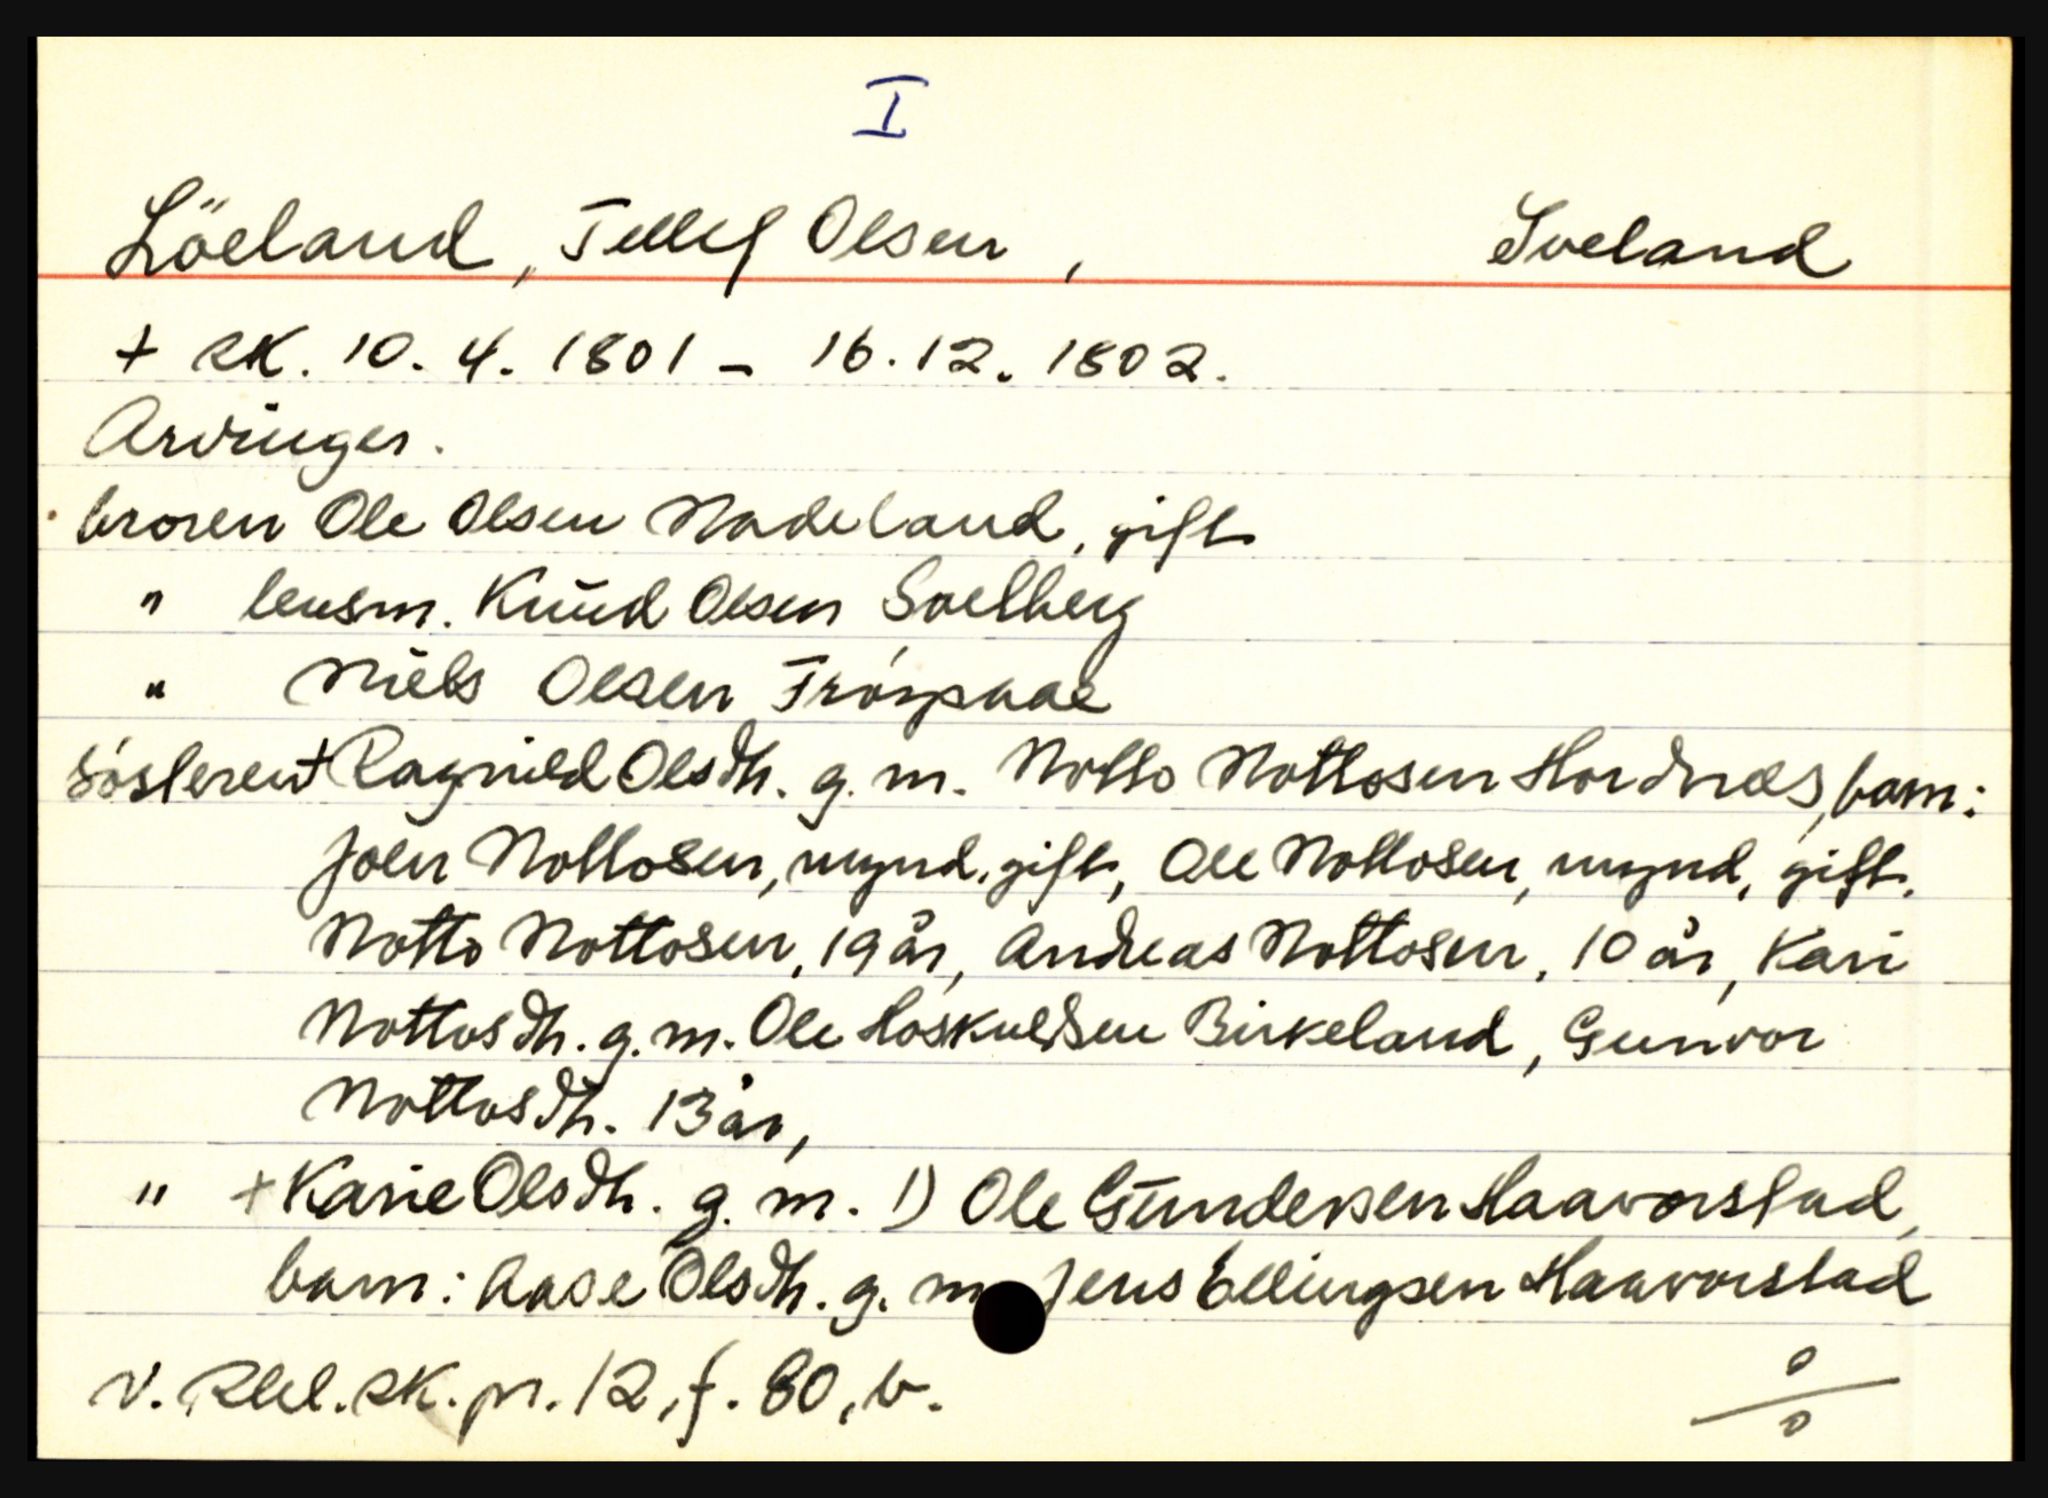 I
Löeland, Tellef Olsen, Sveland
+ sk. 10.4.1801 - 16.12.1802.
Arvinger.
broren Ole Olsen Nodeland, gift
" lensm. Knud Olsen Soelberg
" Niels Olsen
sösteren + Ragnild Olsdtr. g. m. Notto Nottosen Hordnæs, barn:
Joen Nottosen, mynd. gift, Ole Nottosen, mynd, gift,
Notto Nottosen, 19 år, Andreas Nottosen, 10 år, Kari
Nottosdtr. g. m. Ole Hoskuldsen Birkeland, Gunvor
Nottosdtr. 13 år,
" + Karie Olsdtr. g. m. 1) Ole Gundersen Haavorstad,
barn: Aase Olsdtr. g. m. Jens Ellingsen Haavorstad
V. Rbl. sk. pr. 12, f. 80, b.